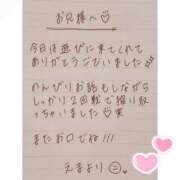 お兄様へ♡
今日は遊びに来てくれて
ありがとうございました
のんびりお話もしながら
しっかり2回戦で搾り取
っちゃいました♡笑
またお口でね!!!
えまより